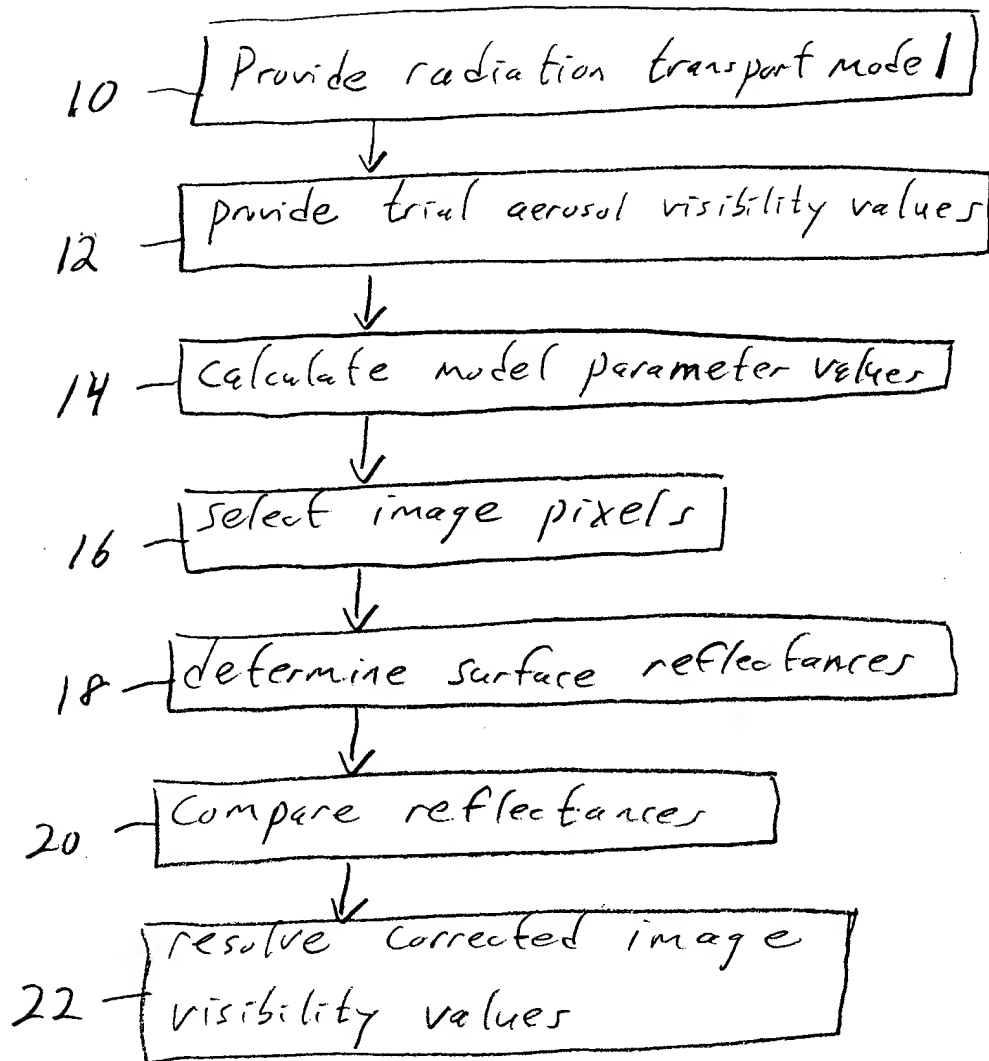 10 Provide radiation transport model
12 provide trial aerosol visibility values
14 calculate model parameter values
16 select image pixels
18 determine surface reflectances
20 Compare reflectances
resolve corrected image
22 visibility values